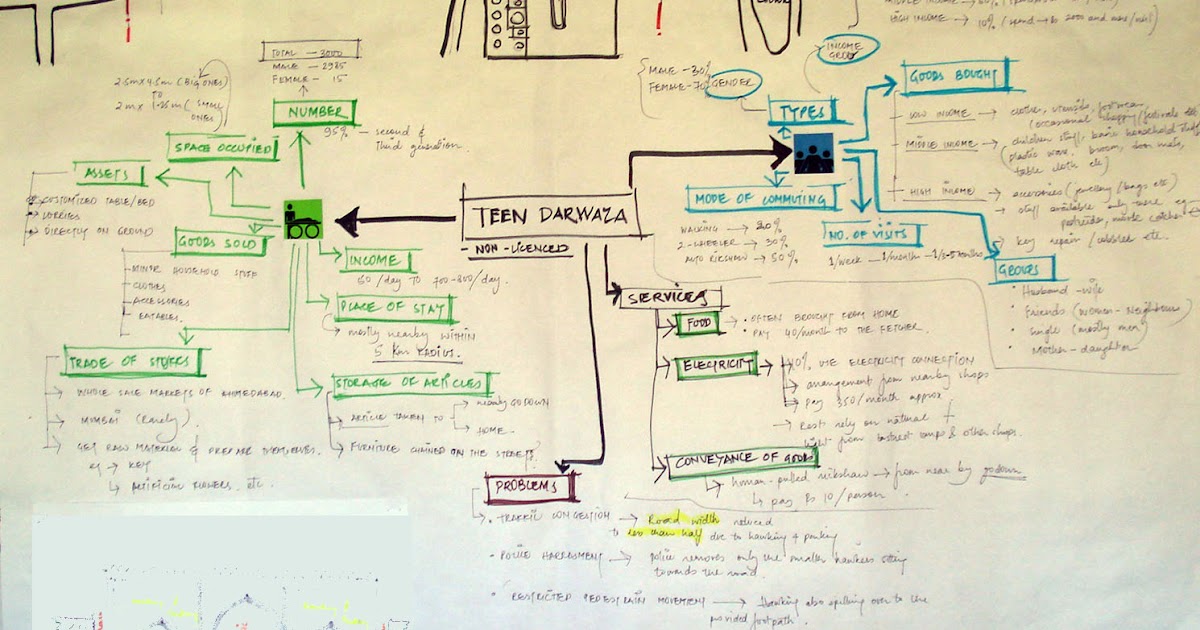 MIDDLE INCOME
HIGH INCOME → 10%
TOTAL — 3000
MALE — 2985
FEMALE — 15
NUMBER
95% — second &
third generation.
2.5m x 4.5m (BIG ONES)
TO
(SMALL
ONES)
SPACE OCCUPIED
ASSETS
CUSTOMIZED TABLE/BED
LORRIES
DIRECTLY ON GROUND
GOODS SOLD
MINOR HOUSEHOLD STUFF
CLOTHES
ACCESSORIES
EATABLES.
INCOME
60/day TO 700-800/day.
PLACE OF STAY
mostly nearby WITHIN
5 Km RADIUS.
TRADE OF STUFFS
WHOLE SALE MARKETS OF AHMEDABAD.
MUMBAI (Rarely).
GET RAW MATERIAL & PREPARE THEMSELVES.
eg → KEY
ARTIFICIAL FLOWERS. etc.
STORAGE OF ARTICLES
ARTICLE TAKEN TO
nearby GODOWN
HOME.
FURNITURE CHAINED ON THE STREETS
TEEN DARWAZA
NON-LICENCED
TYPES
GENDER
MALE - 30%
FEMALE - 70%
INCOME
GROUP
GOODS BOUGHT
LOW INCOME
MIDDLE INCOME
HIGH INCOME
accessories (jewellery / bags etc)
key repair / cobbler etc.
MODE OF COMMUTING
WALKING → 20%
2-WHEELER → 30%
AUTO RIKSHAW → 50%
NO. OF VISITS
1/week — 1/month — 1/3-5 months
GROUPS
Husband - wife
Friends (Women - Neighbours)
Single (mostly men)
Mother - daughter
SERVICES
FOOD
OFTEN BROUGHT FROM HOME
PAY 40/month TO THE FETCHER.
ELECTRICITY
USE ELECTRICITY CONNECTION
arrangement from nearby shops
pay 350/month approx
Rest rely on natural
light from & other shops.
CONVEYANCE OF GOODS
human-pulled rikshaw → from near by godown
pay Rs 10/person
PROBLEMS
TRAFFIC CONGESTION → Road width reduced
to less than half due to hawking & parking
POLICE HARRASMENT → police removes only the smaller hawkers sitting
towards the road.
RESTRICTED PEDESTRAIN MOVEMENT → Hawking also spilling over to the
provided footpath.